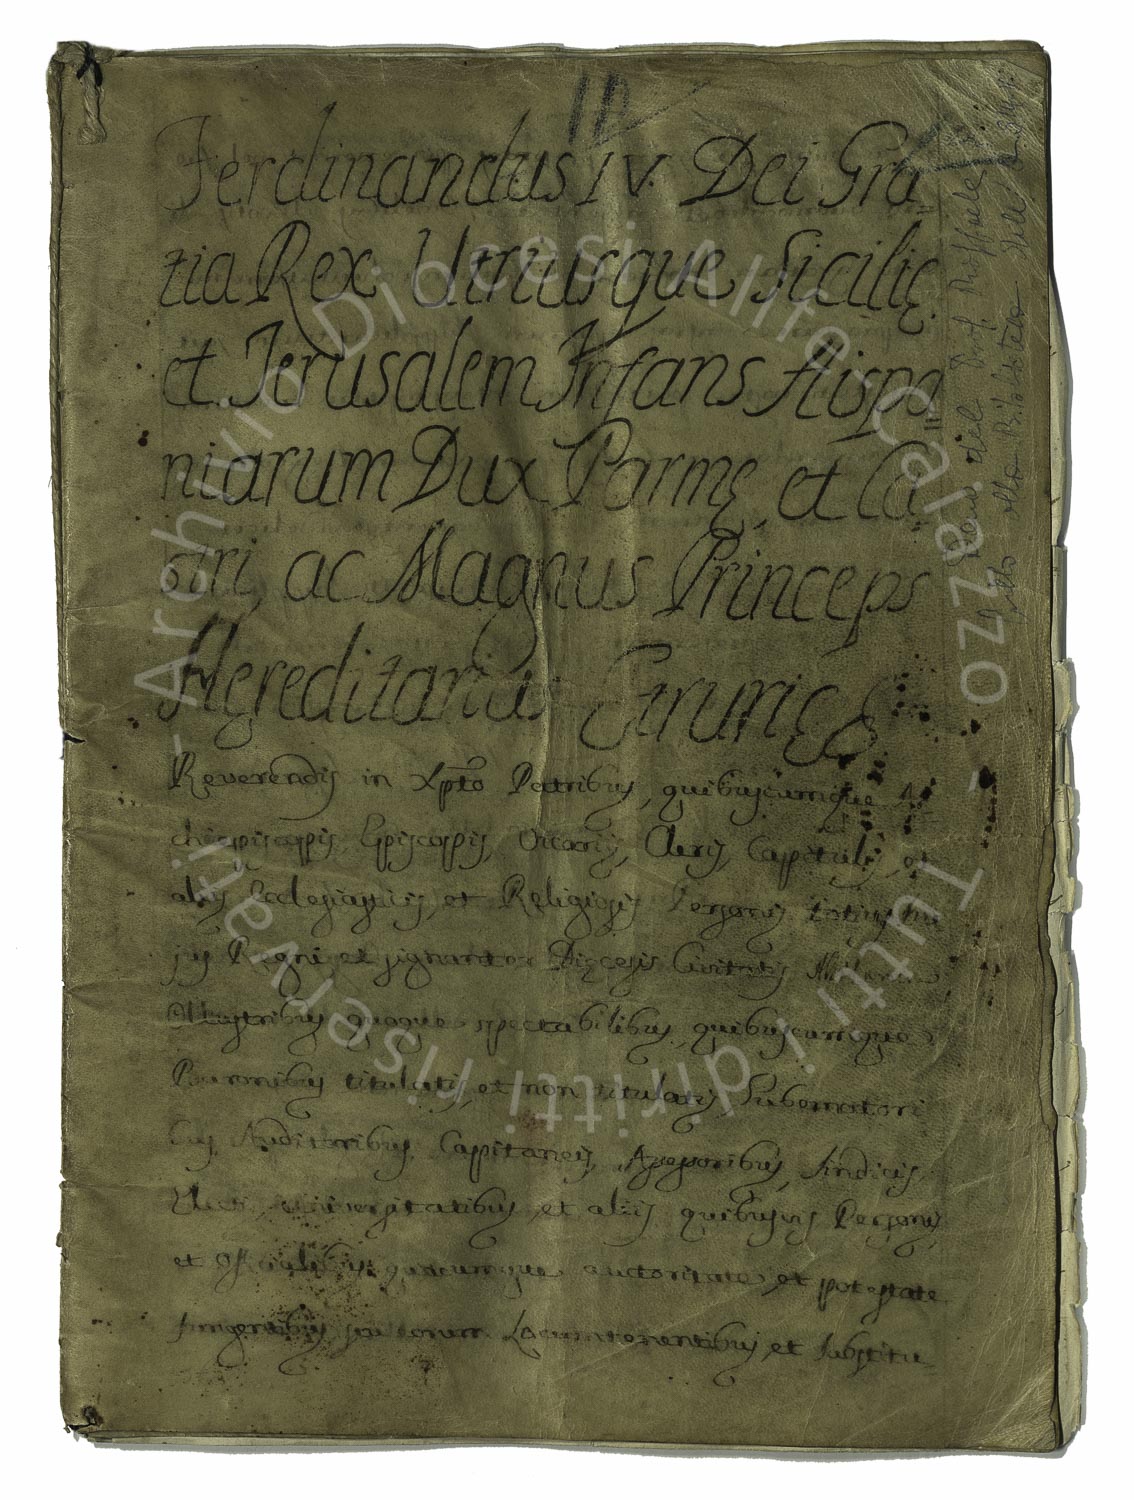 Ferdinandus IV. Dei Gra=
tia Rex Utriusque Sicilię
et Jerusalem Infans Hispa=
niarum Dux Parmę, et Ca=
stri, ac Magnus Princeps
Hereditarius Etrurię &
Reverendis in Xpto Patribus, quibuscumque Ar=
chiepiscopis, Episcopis, Vicariis, Cleris, Capitulis, et
aliis Ecclesiasticis, et Religiosis Personis totius hu
jus Regni et signanter Dięcesis Civitatis
Illustribus quoque spectabilibus, quibuscumque
Baronibus titulatis, et non titulatis, Gubernatori
bus, Auditoribus, Capitaneis, Assessoribus, Sindicis,
Electis Universitatibus et aliis quibusvis Personis,
et Officialibus quacumque auctoritate, et potestate
fungentibus, seu eorum Locumtenentibus, et Substitu=
Dono del Prof. Raffaele
alla Biblioteca
Archivio Diocesi Alife-Caiazzo - Tutti i diritti riservati -